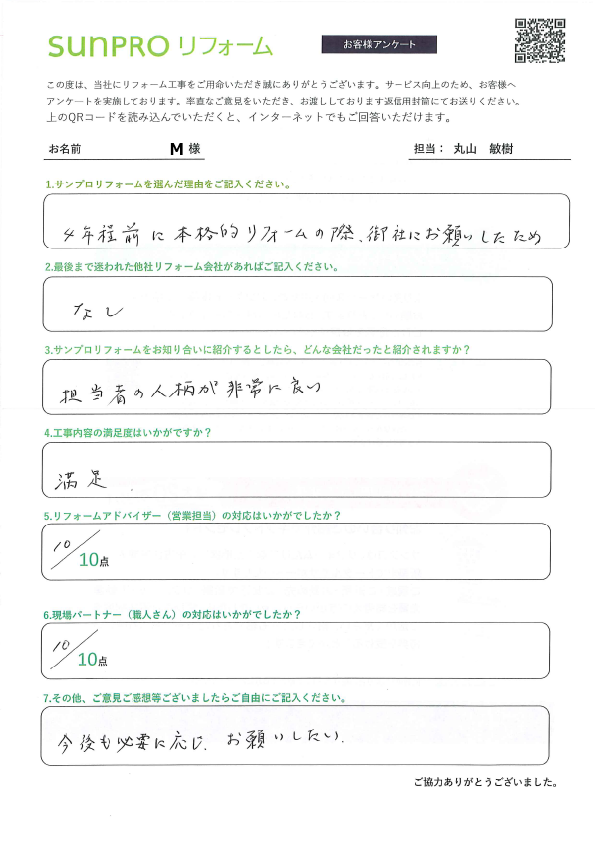 sunPRO リフォーム
お客様アンケート
この度は、当社にリフォーム工事をご用命いただき誠にありがとうございます。サービス向上のため、お客様へ
アンケートを実施しております。率直なご意見をいただき、お渡ししております返信用封筒にてお送りください。
上のQRコードを読み込んでいただくと、インターネットでもご回答いただけます。
お名前 M 様 担当： 丸山 敏樹
1.サンプロリフォームを選んだ理由をご記入ください。
4年程前に本格的リフォームの際、御社にお願いしたため
2.最後まで迷われた他社リフォーム会社があればご記入ください。
なし
3.サンプロリフォームをお知り合いに紹介するとしたら、どんな会社だったと紹介されますか？
担当者の人柄が非常に良い
4.工事内容の満足度はいかがですか？
満足.
5.リフォームアドバイザー（営業担当）の対応はいかがでしたか？
10/10点
6.現場パートナー（職人さん）の対応はいかがでしたか？
10/10点
7.その他、ご意見ご感想等ございましたらご自由にご記入ください。
今後も必要に応じ、お願いしたい.
ご協力ありがとうございました。